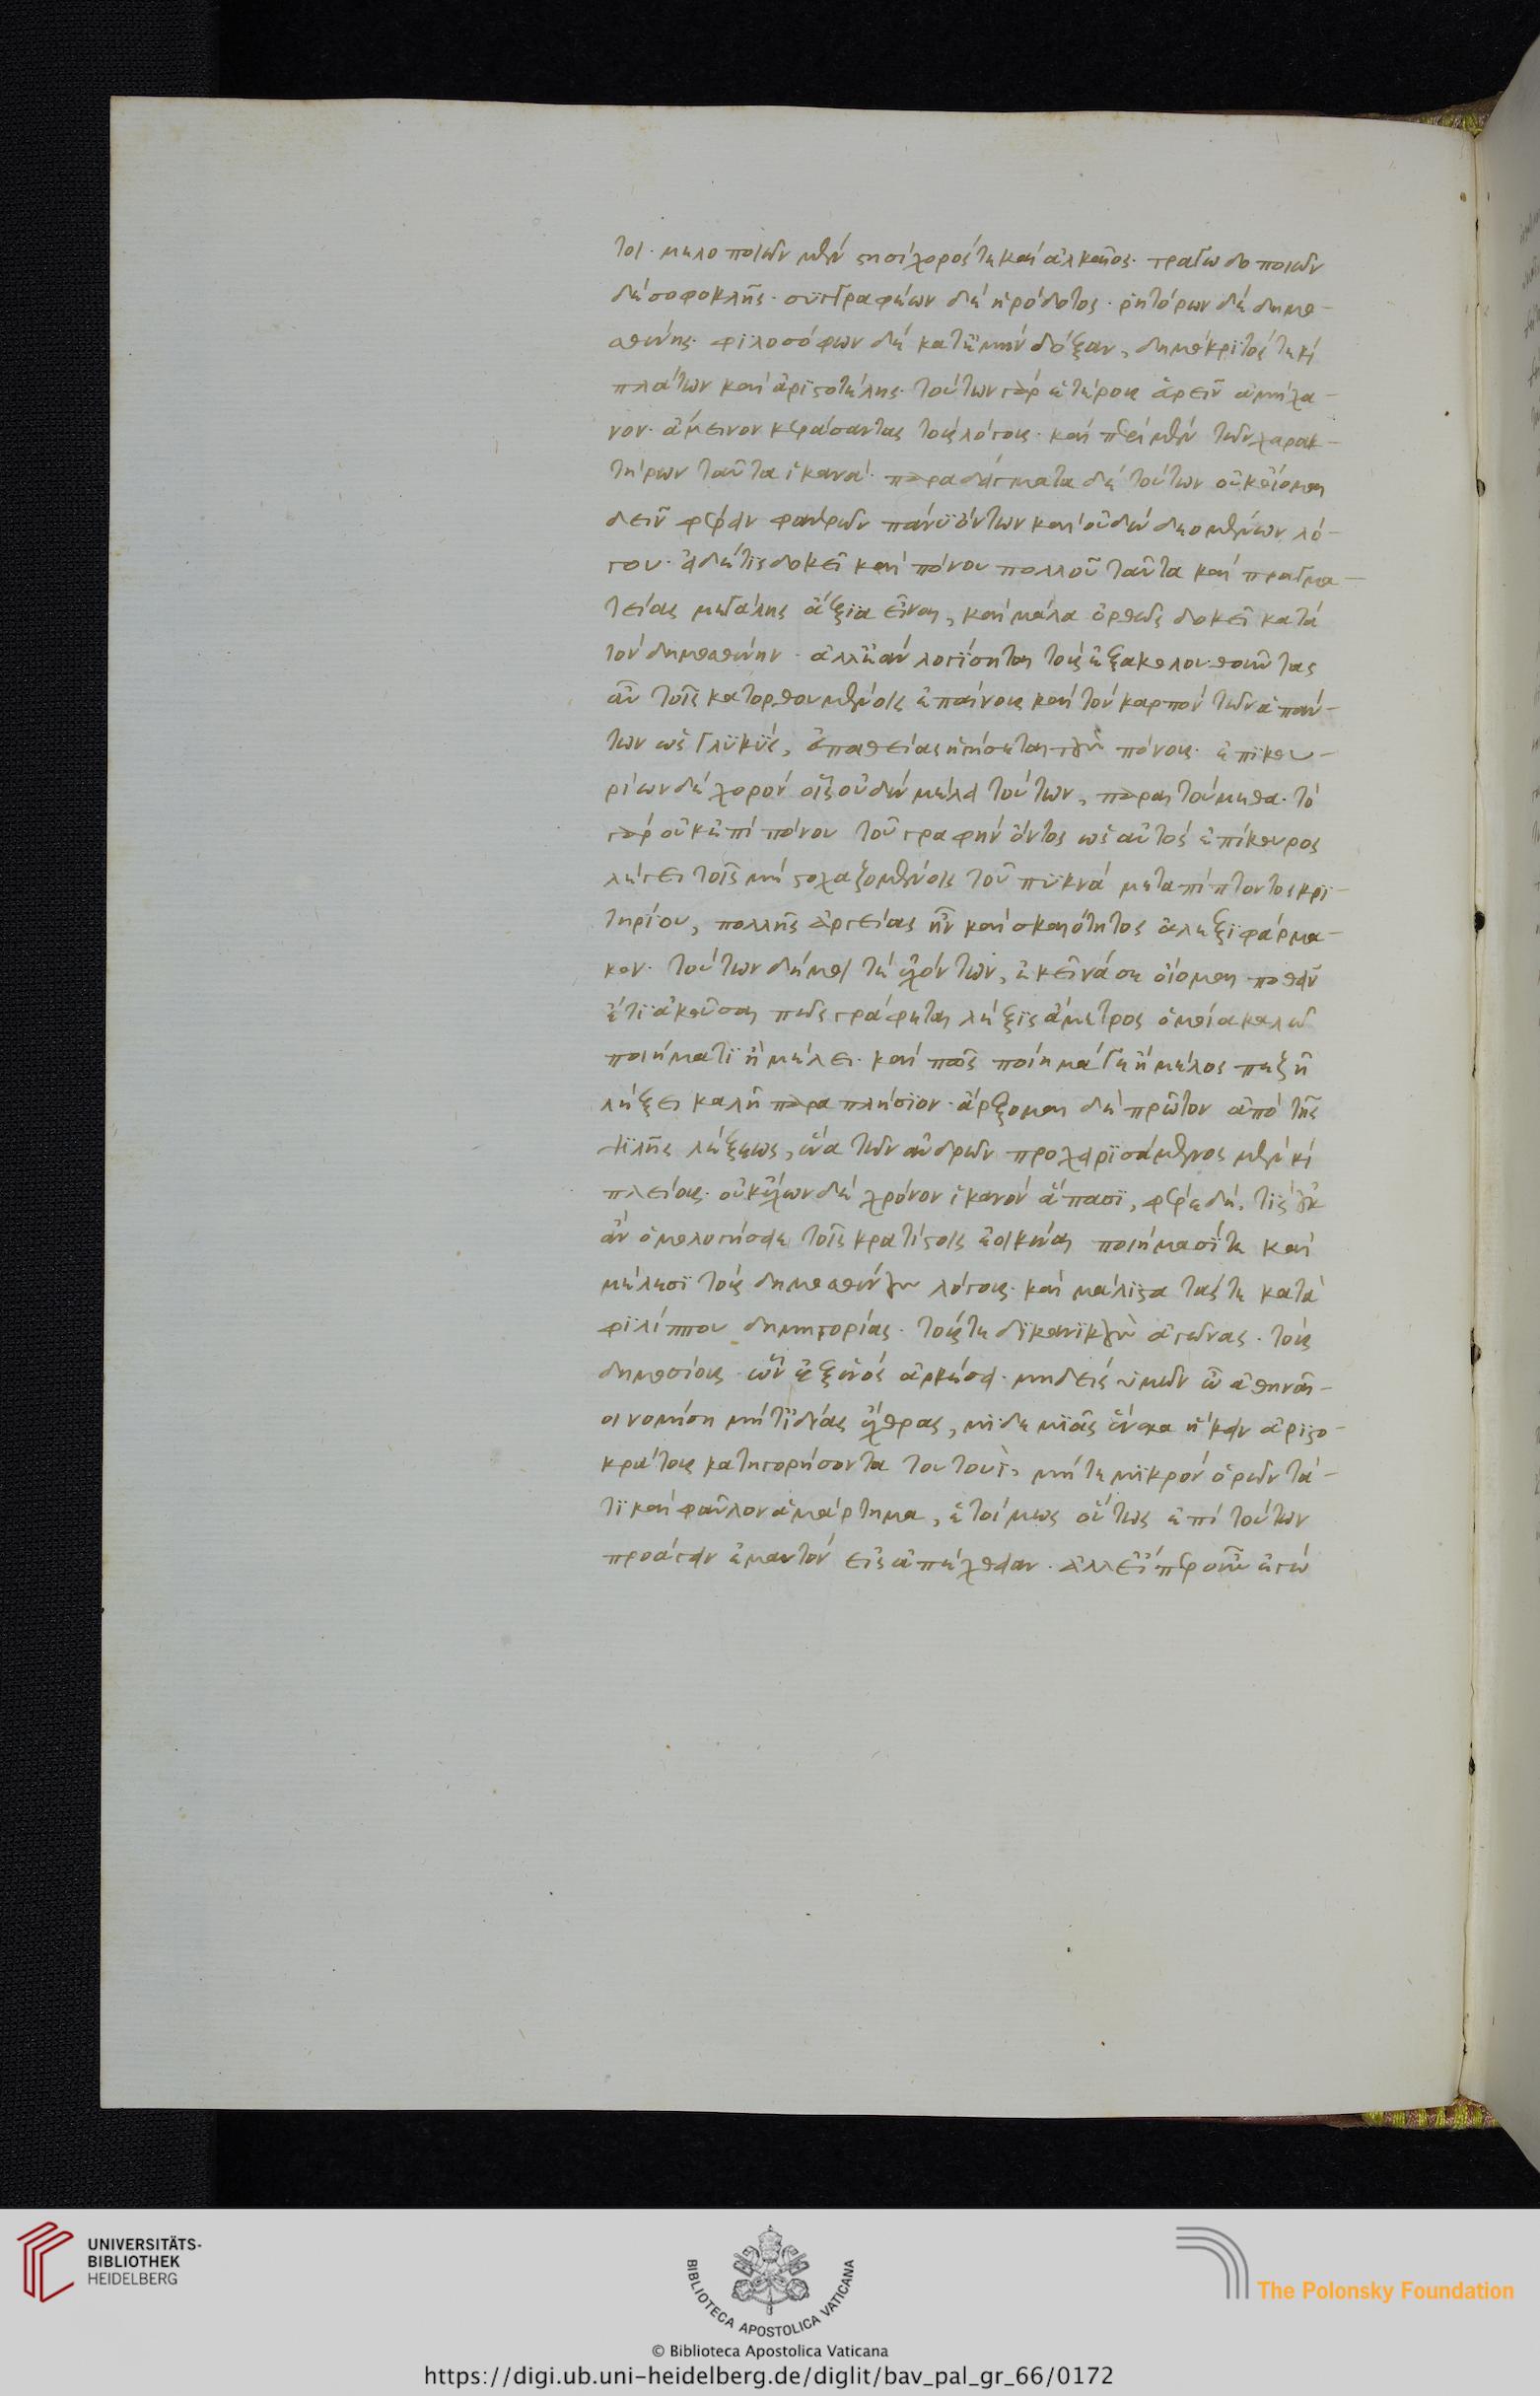 τοι· μελοποιῶν μὲν στησίχορός τε καὶ ἀλκαῖος· τραγωδοποιῶν
δὲ σοφοκλῆς· συγγραφέων δὲ ἡρόδοτος· ῥητόρων δὲ δημο-
σθένης· φιλοσόφων δὲ κατ' ἐμὴν δόξαν, δημόκριτός τε κὶ
πλάτων καὶ ἀριστοτέλης· τούτων γὰρ ἑτέρους εὑρεῖν ἀμήχα-
νον· ἄμεινον κεράσαντας τοὺς λόγους· καὶ περὶ μὲν τῶν χαρακ-
τήρων ταῦτα ἱκανά· παραδείγματα δὲ τούτων οὐκ οἴομαι
δεῖν φέρειν φανερῶν πάνυ ὄντων καὶ οὐδὲν δεομένων λό-
γου· εἰ δέ τις δοκεῖ καὶ πόνου πολλοῦ ταῦτα καὶ πραγμα-
τείας μεγάλης ἄξια εἶναι, καὶ μάλα ὀρθῶς δοκεῖ κατὰ
τὸν δημοσθένην· ἀλλ' ἐὰν λογίσηται τοὺς ἐξακολουθοῦντας
αὖ τοῖς κατορθουμένοις ἐπαίνους καὶ τὸν καρπὸν τὸν ἀπ' αὐ-
τῶν ὡς γλυκύς, εὐπαθείας ἡγήσεται τοὺς πόνους· ἐπικου-
ρίων δὲ χορὸν οἷς οὐδὲν μέλει τούτων, παραιτούμεθα· τὸ
γὰρ οὐκ ἐπιπόνου τοῦ γράφειν ὄντος ὡς αὐτὸς ἐπίκουρος
λέγει τοῖς μὴ στοχαζομένοις τοῦ πυκνὰ μεταπίπτοντος κρι-
τηρίου, πολλῆς ἀργείας ἦν καὶ σκαιότητος ἀλεξιφάρμα-
κον· τούτων δή μοι τέλος ἐχόντων, ἐκεῖνά σε οἴομαι ποθεῖν
ἔτι ἀκοῦσαι πῶς γράφεται λέξις ἄμετρος ὁμοία καλῶ
ποιήματι ἢ μέλει· καὶ πῶς ποίημά γε ἢ μέλος πεζῆ
λέξει καλῆ παραπλήσιον· ἄρξομαι δὲ πρῶτον ἀπὸ τῆς
ψιλῆς λέξεως, ἕνα τῶν ἀνδρῶν προχειρισάμενος μὲν κὶ
πλείους· οὐκ ἔχων δὲ χρόνον ἱκανὸν ἅπασι, φέρε δή, τίς οὐκ
ἂν ὁμολογήσειε τοῖς κρατίστοις ἐοικέναι ποιήμασί τε καὶ
μέλεσι τοὺς δημοσθένους λόγους· καὶ μάλιστα τάς τε κατὰ
φιλίππου δημηγορίας· τούς τε δικανικοὺς ἀγῶνας· τοὺς
δημοσίους· ὧν ἐξ ἑνὸς ἀρκέσει· μηδεὶς ὑμῶν ὦ ἀθηναῖ-
οι νομίση μήτ' ἰδίας ἔχθρας, μηδεμιᾶς ἕνεκα ἥκειν ἀριστο-
κράτους κατηγορήσοντα τουτουί, μήτε μικρὸν ὁρῶντά
τι καὶ φαῦλον ἁμάρτημα, ἑτοίμως οὕτως ἐπὶ τούτων
προάγειν ἐμαυτὸν εἰς ἀπέχθειαν· ἀλλ' εἴπερ οὖν ἐγὼ
UNIVERSITÄTS-
BIBLIOTHEK
HEIDELBERG
BIBLIOTECA APOSTOLICA VATICANA
The Polonsky Foundation
© Biblioteca Apostolica Vaticana
https://digi.ub.uni-heidelberg.de/diglit/bav_pal_gr_66/0172